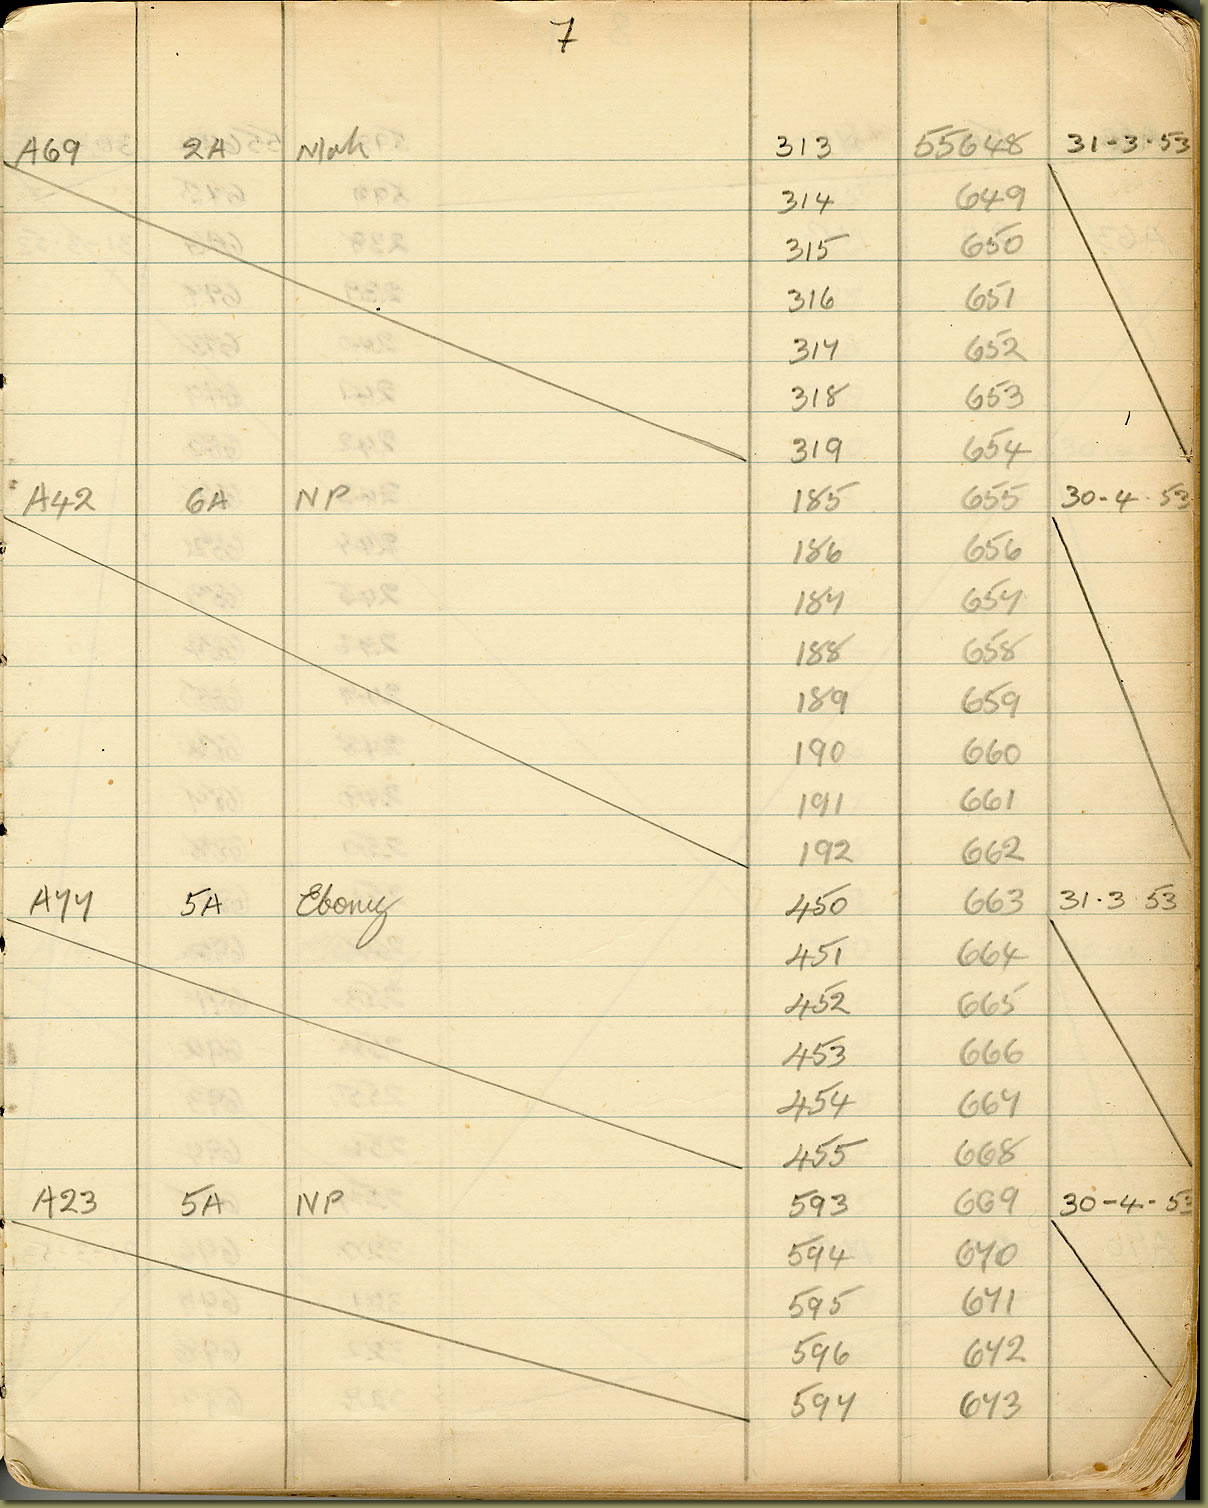 7
A69 2A Mah 313 55648 31-3-53
314 649
315 650
316 651
317 652
318 653
319 654
A42 6A NP 185 655 30-4-53
186 656
187 657
188 658
189 659
190 660
191 661
192 662
A77 5A Ebony 450 663 31-3-53
451 664
452 665
453 666
454 667
455 668
A23 5A NP 593 669 30-4-53
594 670
595 671
596 672
597 673